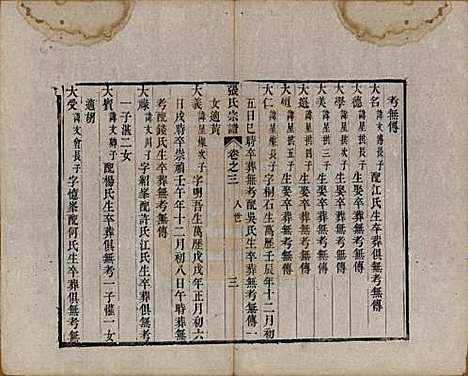 考無傳
大名 諱文傅長子 配江氏生卒葬俱無考無傳
大德 諱星 次子 生娶卒葬無考無傳
大學 諱星拱長子 生娶卒葬無考無傳
大美 諱星拱三子 生娶卒葬無考無傳
大選 諱星拱四子 生娶卒葬無考無傳
大道 諱星拱五子 生娶卒葬無考無傳
大仁 諱星燦長子 字桐石生萬歷壬辰年十二月初
五日巳時卒葬無考配吳氏生卒葬無考無傳一
張氏宗譜 卷之三 八世 三
女適黃
大義 諱星燦次子 字明吾生萬歷戊戌年正月初六
日戌時卒崇禎壬午年十二月初八日午時葬無
考配錢氏生卒葬無考無傳
大祿 諱文川子 字紹峯配許氏江氏生卒葬俱無考
一子湛二女
大賓 諱文 子 配楊氏生卒葬俱無考一子催一女
適胡
大受 諱文會長子 字憶峯配何氏生卒葬俱無考無傳